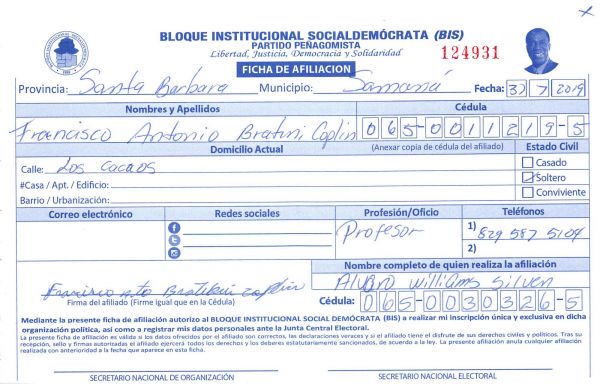 BLOQUE INSTITUCIONAL SOCIALDEMÓCRATA (BIS)
PARTIDO PEÑAGOMISTA
Libertad, Justicia, Democracia y Solidaridad
124931
FICHA DE AFILIACION
Provincia: Santa Barbara Municipio: Samaná Fecha: 31 7 2019
Nombres y Apellidos Cédula
Francisco Antonio Bratini Coplin 065-0011219-5
Domicilio Actual (Anexar copia de cédula del afiliado) Estado Civil
Calle: Los Cacaos Casado
#Casa / Apt. / Edificio: Soltero
Barrio / Urbanización: Conviviente
Correo electrónico Redes sociales Profesión/Oficio Teléfonos
Profesor 1) 829 587 5104
2)
Nombre completo de quien realiza la afiliación
Francisco Alvaro Williams Silven
Firma del afiliado (Firme igual que en la Cédula) Cédula: 065-0030326-5
Mediante la presente ficha de afiliación autorizo al BLOQUE INSTITUCIONAL SOCIAL DEMÓCRATA (BIS) a realizar mi inscripción única y exclusiva en dicha
organización política, así como a registrar mis datos personales ante la Junta Central Electoral.
La presente ficha de afiliación es válida si los datos ofrecidos por el afiliado son correctos, las declaraciones veraces y si el afiliado tiene el disfrute de sus derechos civiles y políticos. Tras su
recepción, sello y firmas autorizadas el afiliado ejercerá todos los derechos y los deberes estatutariamente sancionados, de acuerdo a la ley. La presente afiliación anula cualquier afiliación
realizada con anterioridad a la fecha que aparece en esta ficha.
SECRETARIO NACIONAL DE ORGANIZACIÓN SECRETARIO NACIONAL ELECTORAL